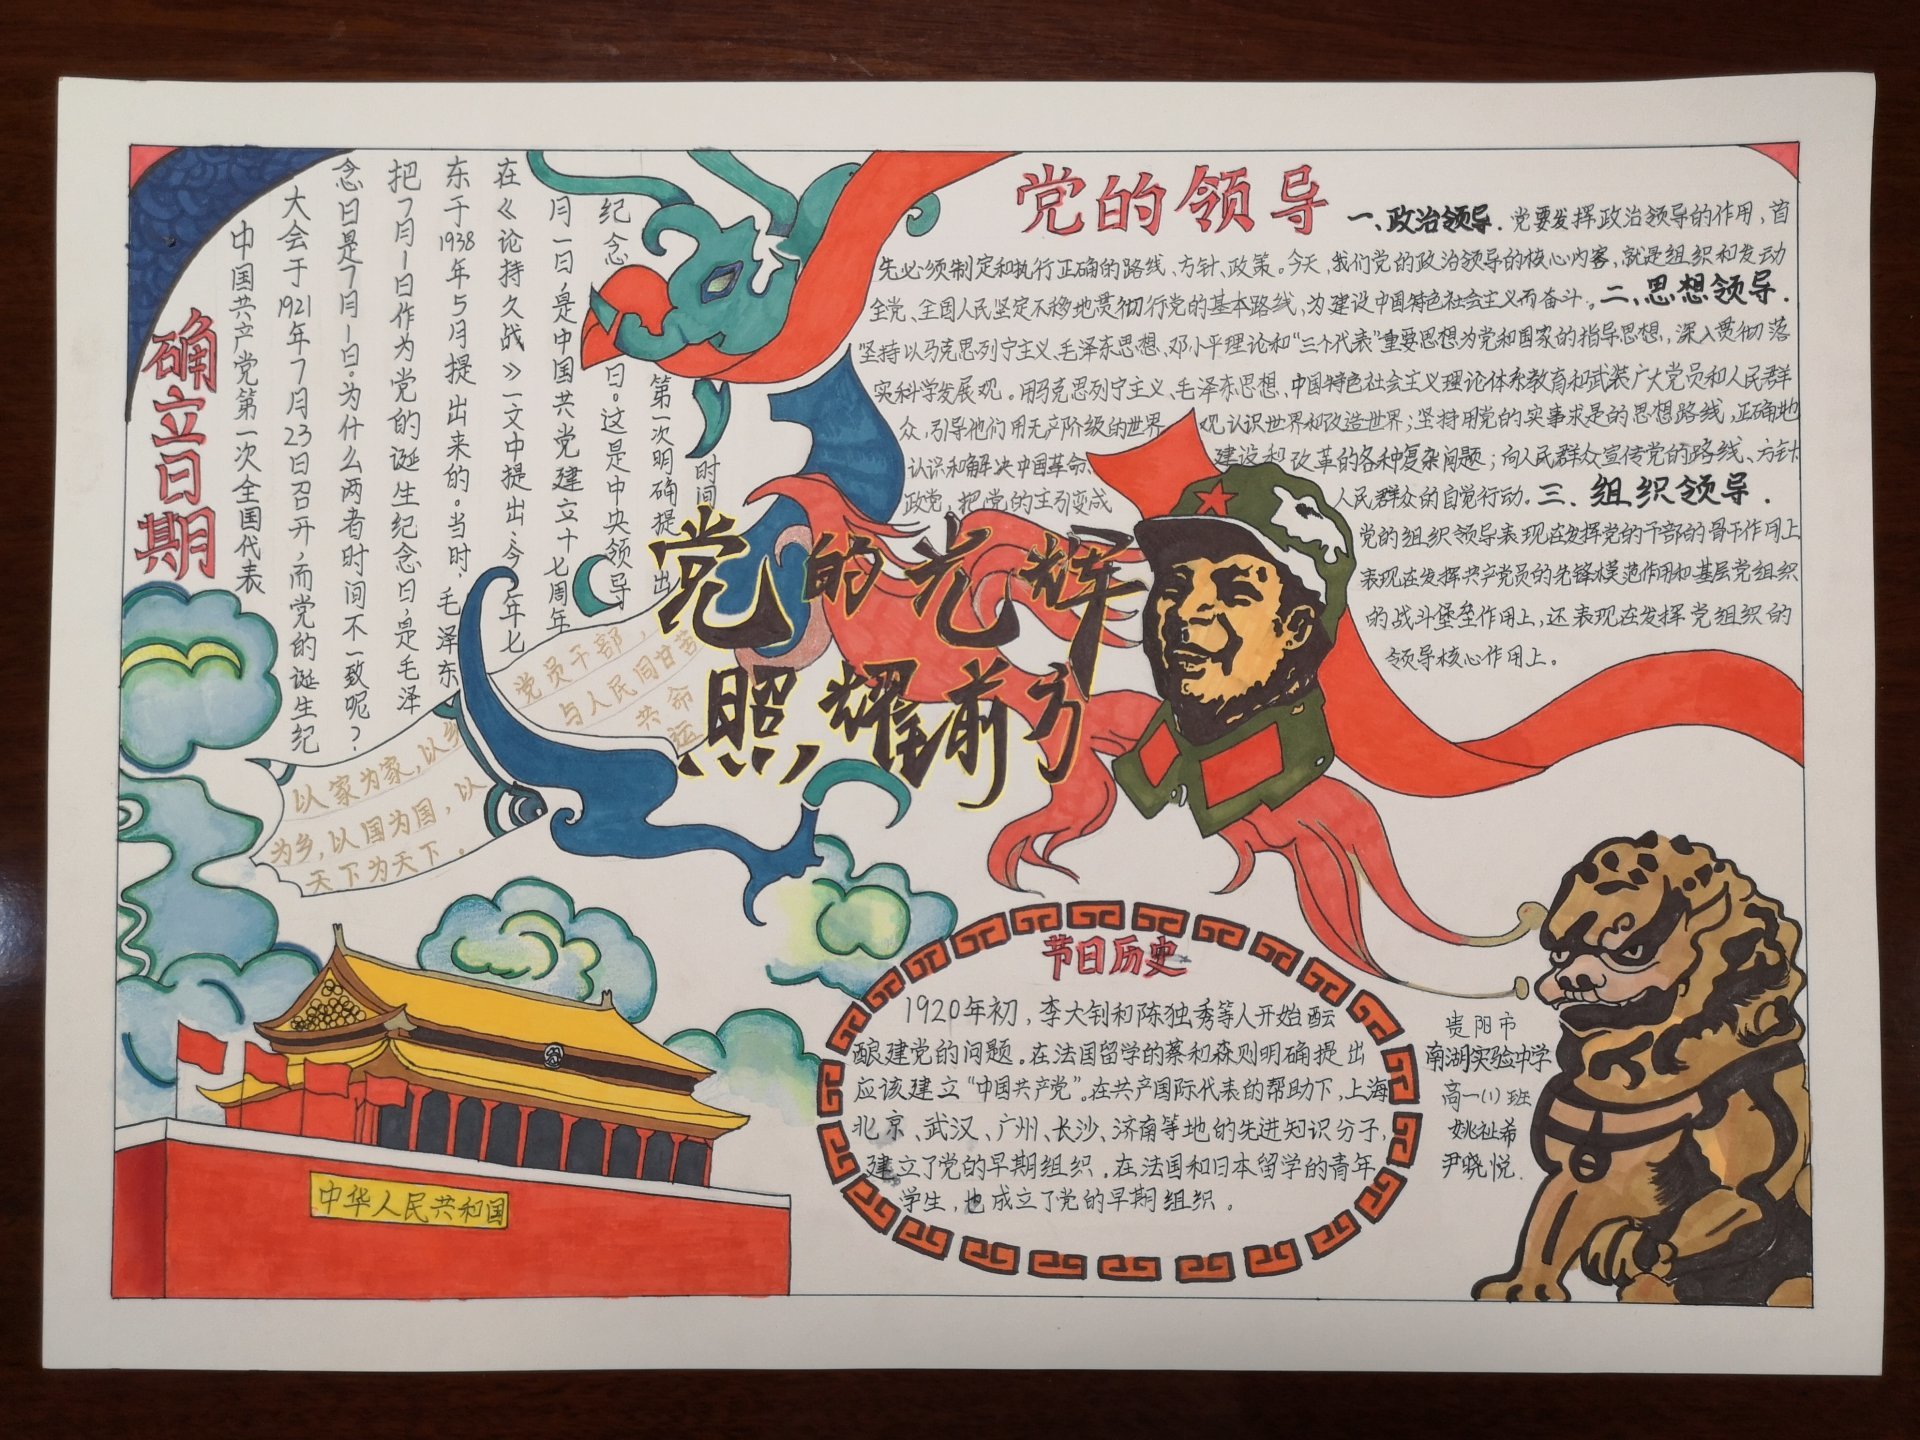 确立日期
中国共产党第一次全国代表
大会于1921年7月23日召开,而党的诞生纪
念日是7月1日。为什么两者时间不一致呢?
把7月1日作为党的诞生纪念日,是毛泽
东于1938年5月提出来的。当时,毛泽东
在《论持久战》一文中提出:今年七
月一日,是中国共党建立十七周年
纪念日。这是中央领导
第一次明确提出
时间
以家为家,以乡
为乡,以国为国,以
天下为天下。
党员干部,
与人民同甘苦
共命运
党的光辉
照耀前行
党的领导
一、政治领导.党要发挥政治领导的作用,首
先必须制定和执行正确的路线、方针、政策。今天,我们党的政治领导的核心内容,就是组织和发动
全党、全国人民坚定不移地贯彻行党的基本路线,为建设中国特色社会主义而奋斗.。二、思想领导.
"坚持以马克思列宁主义、毛泽东思想、邓小平理论和"三个代表"重要思想为党和国家的指导思想,深入贯彻落
实科学发展观。用马克思列宁主义、毛泽东思想、中国特色社会主义理论体系教育和武装广大党员和人民群
众,引导他们用无产阶级的世界观认识世界和改造世界;坚持用党的实事求是的思想路线,正确地
认识和解决中国革命、建设和改革的各种复杂问题;向人民群众宣传党的路线、方针
政党,把党的主引变成人民群众的自觉行动.三.组织领导.
党的组织领导表现在发挥党的干部的骨干作用上
表现在发挥共产党员的先锋模范作用和基层党组织
的战斗堡垒作用上,还表现在发挥党组织的
领导核心作用上。
节日历史
1920年初,李大钊和陈独秀等人开始酝
酿建党的问题。在法国留学的蔡和森则明确提出
应该建立"中国共产党"。在共产国际代表的帮助下,上海
北京、武汉、广州、长沙、济南等地的先进知识分子,
建立了党的早期组织.在法国和日本留学的青年
学生,也成立了党的早期组织。
贵阳市
南湖实验中学
高一(1)班
姚祉希
尹晓悦.
中华人民共和国